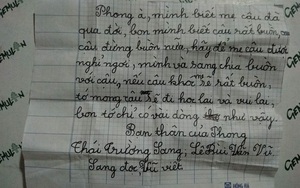 Phong à, mình biết mẹ cậu đã
qua đời, bọn mình biết cậu rất buồn
cậu đừng buồn nữa, hãy để mẹ cậu được
nghỉ ngơi, mình và sang chia buồn
với cậu, nếu cậu khóc mẹ sẽ rất buồn,
tớ mong cậu sẽ đi học lại và vui lại,
bọn tớ chỉ có vài dòng như vậy.
Bạn thân của Phong
Thái Trường Sang, Lê Bùi Văn Vũ
Sang đọc Vũ viết